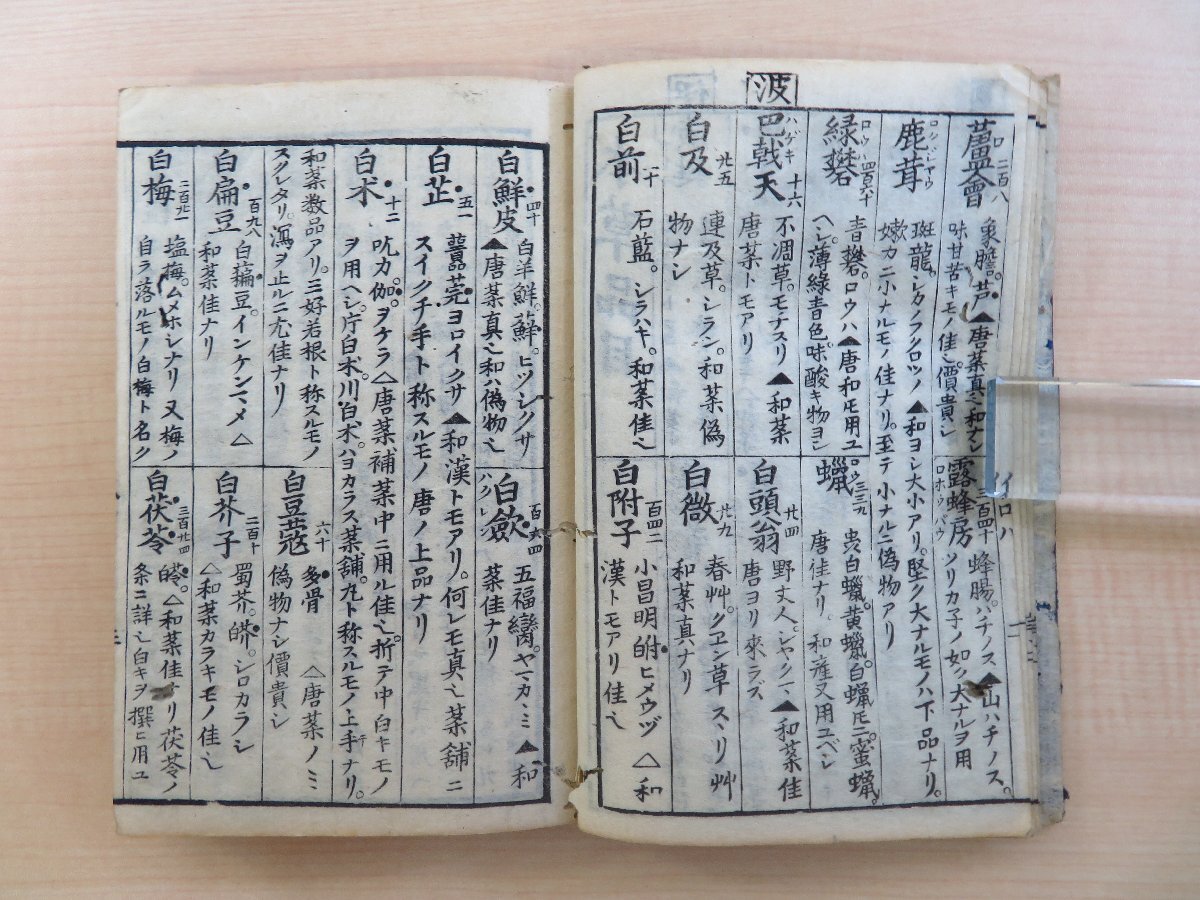 イロハ
蘆薈 二百八 象膽。芦▲唐薬真也和ナシ
味甘苦キモノ佳也價貴シ
露蜂房 蜂腸。ハチノス▲山ハチノス。
ソリカ子ノ如ク大ナルヲ用
鹿茸 斑龍。シカノフクロツノ▲和ヨシ大小アリ。堅ク大ナルモノハ下品ナリ。
嫩カニ小ナルモノ佳ナリ。至テ小ナルニ偽物アリ
緑礬 青礬。ロウハ▲唐和圧用ユ
ヘシ。薄緑青色味酸キ物ヨシ
蠟 虫白蠟。黄蠟。白蠟圧ニ蜜蠟。
唐佳ナリ。和産又用ユベシ
波
巴戟天 ハゲキ 十六 不凋草。モチスリ▲和薬
唐薬トモアリ
白頭翁 廿四 野丈人シヤクマ▲和薬佳
唐ヨリ來ラズ
白及 廿五 連及草。シラン。和薬偽
物ナシ
白薇 廿九 春艸。グヱン草 スヽリ艸
和薬真ナリ
白前 二十 石藍。シラハキ。和薬佳也
白附子 百四二 小昌明 ヒメウヅ △和
漢トモアリ佳也
白鮮皮 四十 白羊鮮。ヒツジクサ
▲唐薬真也和ハ偽物也
白斂 ハクレ 百六四 五福 ヤマカヽミ ▲和
薬佳ナリ
白芷 五一 ヨロイクサ ▲和漢トモアリ。何レモ真也薬舗ニ
スイクチ手ト称スルモノ 唐ノ上品ナリ
白朮 十二 吃力。伽。ヲケラ△唐薬補薬中ニ用ル佳也。折テ中白キモノ
ヲ用ヘシ。片白朮。川白朮。ハヨカラス薬舗。丸ト称スルモノ上手ナリ。
和薬数品アリ。三好若根ト称スルモノ
スクレタリ。瀉ヲ止ルニ尤佳ナリ
白豆蔲 六十 多骨 △唐薬ノミ
偽物ナシ價貴シ
白扁豆 百九八 白藊豆。インケンマメ△
和薬佳ナリ
白芥子 二百十 蜀芥。シロカラシ
△和薬カラキモノ佳也
白梅 塩梅。ムメホシナリ 又梅ノ
自ラ落ルモノ白梅ト名ク
白茯苓 三百廿四 △和薬佳ナリ茯苓ノ
条ニ詳也白キヲ撰ヒ用ユ